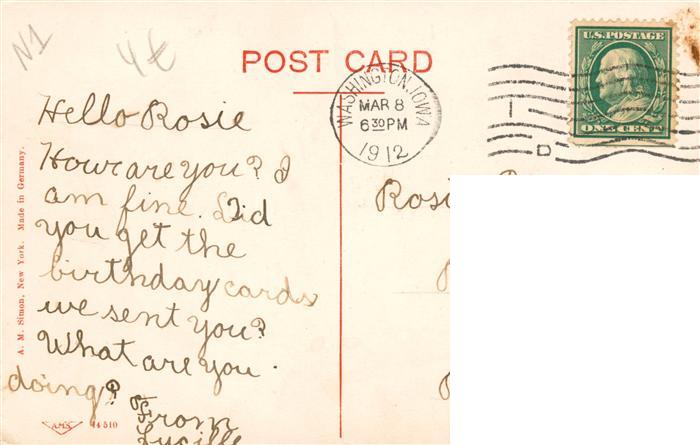 N1
4¢
POST CARD
U.S. POSTAGE
ONE CENT
WASHINGTON, IOWA
MAR 8
6 30 PM
1912
D
Hello Rosie
How are you? I
am fine. Did
you get the
birthday cards
we sent you?
What are you
doing?
From
Lucille
Rosie
A. M. Simon, New York. Made in Germany.
AMS
44510